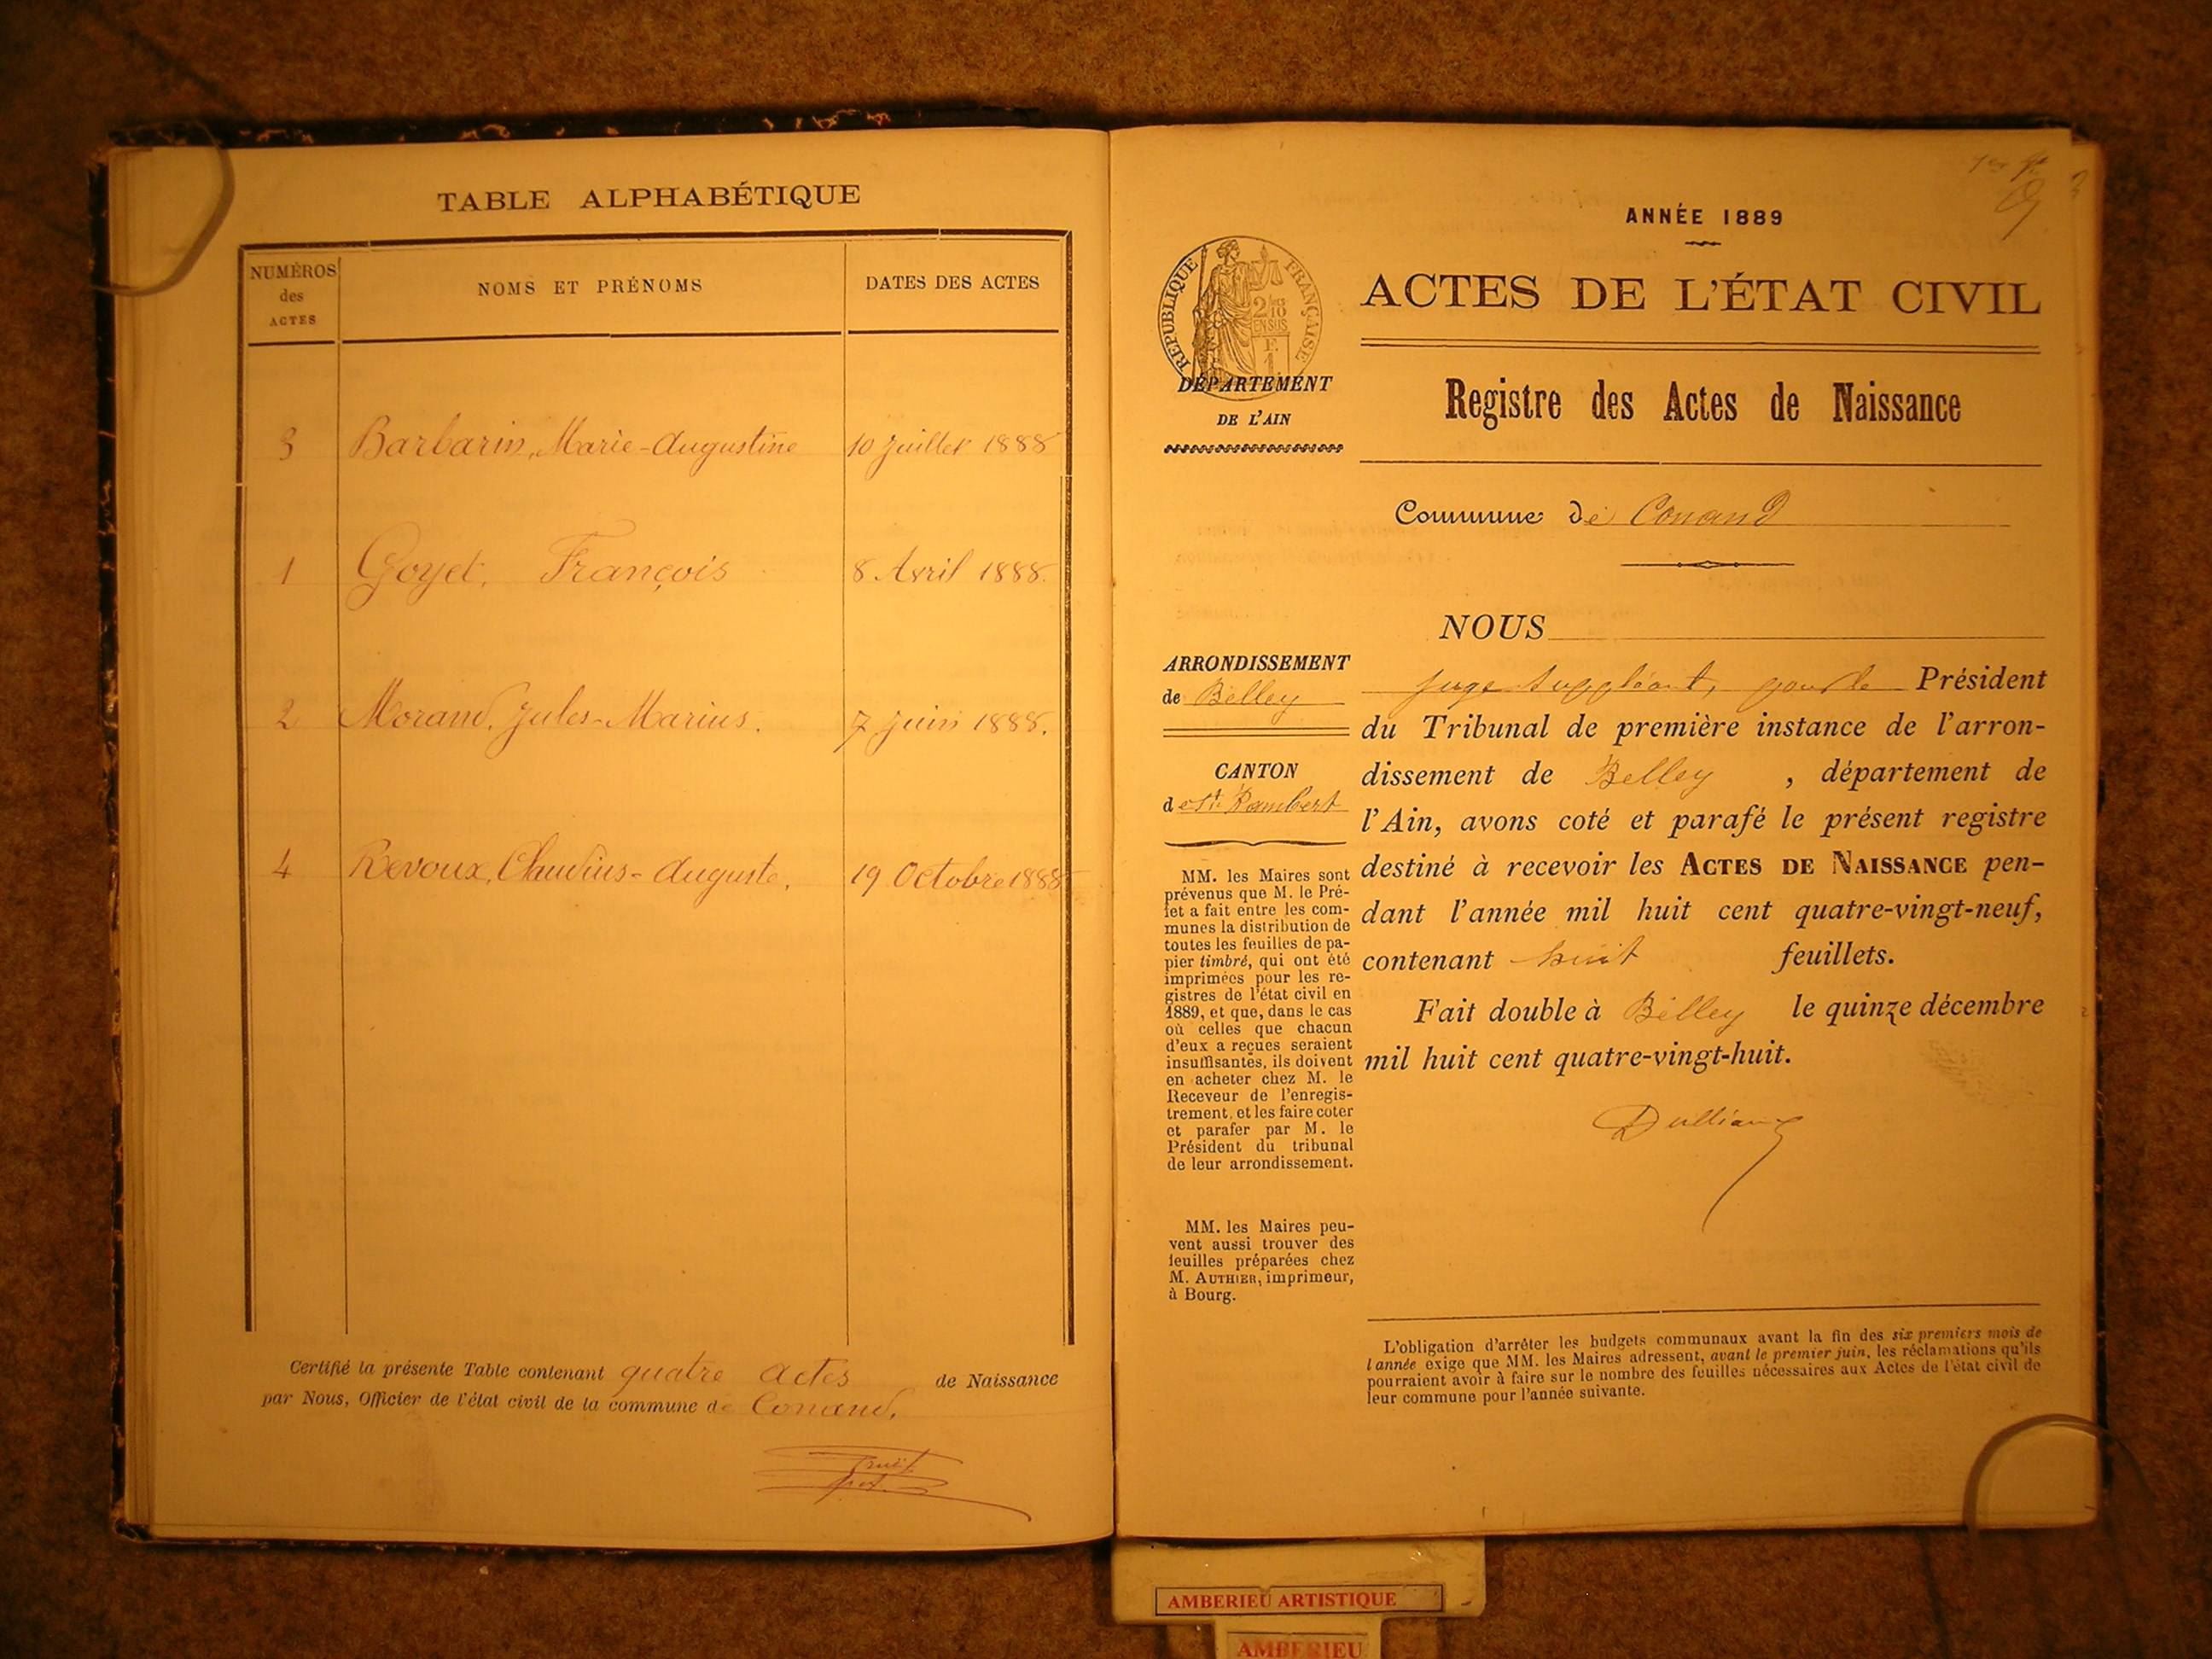 TABLE ALPHABÉTIQUE
NUMÉROS des ACTES
NOMS ET PRÉNOMS
DATES DES ACTES
3 Barbarin, Marie-Augustine 10 Juillet 1888
1 Goyet, François 8 Avril 1888.
2 Morand, Jules-Marius. 7 Juin 1888.
4 Revoux, Claudius-Auguste. 19 Octobre 1888
Certifié la présente Table contenant quatre actes de Naissance
par Nous, Officier de l'état civil de la commune de Conand.
ANNÉE 1889
RÉPUBLIQUE FRANÇAISE
ACTES DE L'ÉTAT CIVIL
DÉPARTEMENT
DE L'AIN
Registre des Actes de Naissance
Commune de Conand
NOUS
ARRONDISSEMENT
de Belley
CANTON
de St Rambert
MM. les Maires sont
prévenus que M. le Pré-
fet a fait entre les com-
munes la distribution de
toutes les feuilles de pa-
pier timbré, qui ont été
imprimées pour les re-
gistres de l'état civil en
1889, et que, dans le cas
où celles que chacun
d'eux a reçues seraient
insuffisantes, ils doivent
en acheter chez M. le
Receveur de l'enregis-
trement, et les faire coter
et parafer par M. le
Président du tribunal
de leur arrondissement.
MM. les Maires peu-
vent aussi trouver des
feuilles préparées chez
M. AUTHIER, imprimeur,
à Bourg.
juge suppléant, pour le Président
du Tribunal de première instance de l'arron-
dissement de Belley , département de
l'Ain, avons coté et parafé le présent registre
destiné à recevoir les ACTES DE NAISSANCE pen-
dant l'année mil huit cent quatre-vingt-neuf,
contenant huit feuillets.
Fait double à Belley le quinze décembre
mil huit cent quatre-vingt-huit.
L'obligation d'arrêter les budgets communaux avant la fin des six premiers mois de
l'année exige que MM. les Maires adressent, avant le premier juin, les réclamations qu'ils
pourraient avoir à faire sur le nombre des feuilles nécessaires aux Actes de l'état civil de
leur commune pour l'année suivante.
AMBERIEU ARTISTIQUE
AMBERIEU